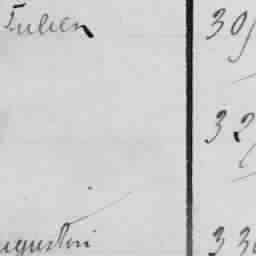 Julien 30
32
ugustin 33